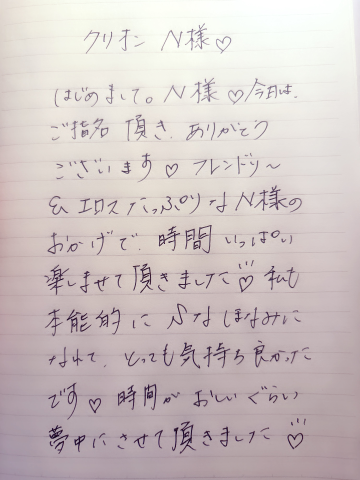 クリオン N様♡
はじめまして。N様♡今日は、
ご指名 頂き、ありがとう
ございます♡ フレンドリ〜
& エロスたっぷりなN様の
おかげで、時間いっぱい
楽しませて頂きました♡ 私も
本能的に Sなほなみに
なれて、とっても気持ち良かった
です♡ 時間が おしいぐらい
夢中にさせて頂きました♡